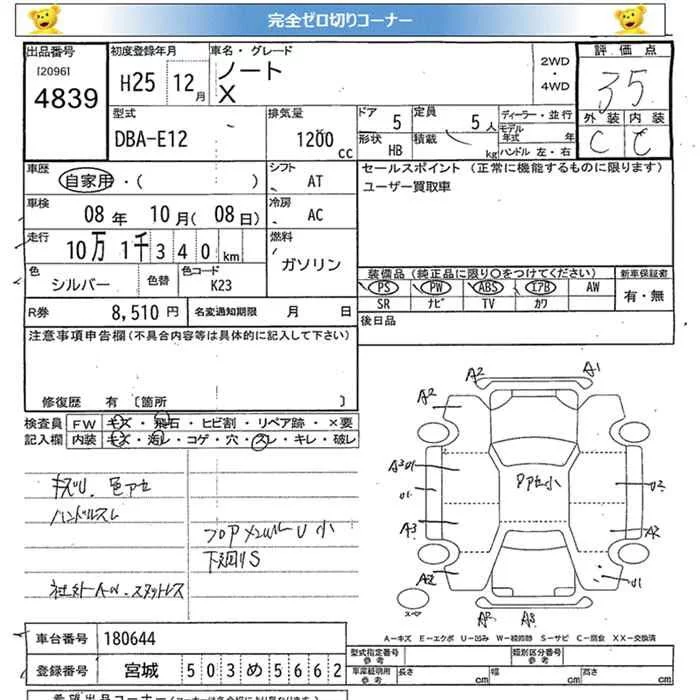 完全ゼロ切りコーナー
出品番号
[2096]
4839
初度登録年月
H25 12月
車名・グレード
ノート
X
2WD
・
4WD
評価点
3.5
外装 内装
C C
型式
DBA-E12
排気量
1200 cc
ドア
5
定員
5人
形状
HB
積載
kg
ディーラー・並行
モデル年式 年
ハンドル 左・右
車歴
自家用・( )
シフト
AT
車検
08年 10月(08日)
冷房
AC
走行
10万 1千 340 km
燃料
ガソリン
色
シルバー
色替
色コード
K23
R券
8,510円
名変通知期限 月 日
セールスポイント (正常に機能するものに限ります)
ユーザー買取車
装備品(純正品に限り〇をつけてください)
新車保証書
PS PW ABS エアB AW
SR ナビ TV カワ
有・無
後日品
注意事項申告欄(不具合内容等は具体的に記入して下さい)
修復歴 有 〔箇所 〕
検査員
記入欄
FW キズ・飛石・ヒビ割・リペア跡・×要
内装 キズ・汚レ・コゲ・穴・スレ・キレ・破レ
キズU. 色アセ
ハンドルスレ
フロアメンバーU 小
下廻りS
社外アルミ. スタットレス
A2 A1
A2
A3U1
U1
A3
A2
Pアセ小
U2
A2
U1
スペア
A2 A3
A-キズ E-エクボ U-凹み W-補修跡 S-サビ C-腐食 XX-交換済
車台番号
180644
型式指定番号
参考
類別区分番号
参考
登録番号
宮城 503 め 5662
車庫証明用
参考
長さ cm 幅 cm 高さ cm
希望出品コーナー